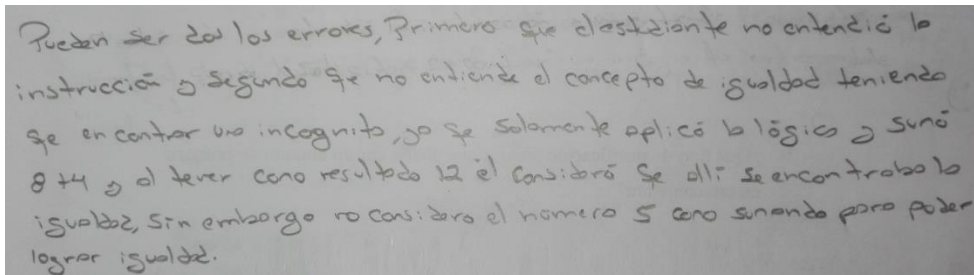 Pueden ser dos los errores, Primero que el estudiante no entendió la
instrucción y segundo que no entiende el concepto de igualdad teniendo
que encontrar una incognita, ya que solamente aplicó la lógica y sumó
8+4 y al tener como resultado 12 él consideró que allí se encontraba la
igualdad, sin embargo no considero el número 5 como sumando para poder
lograr igualdad.